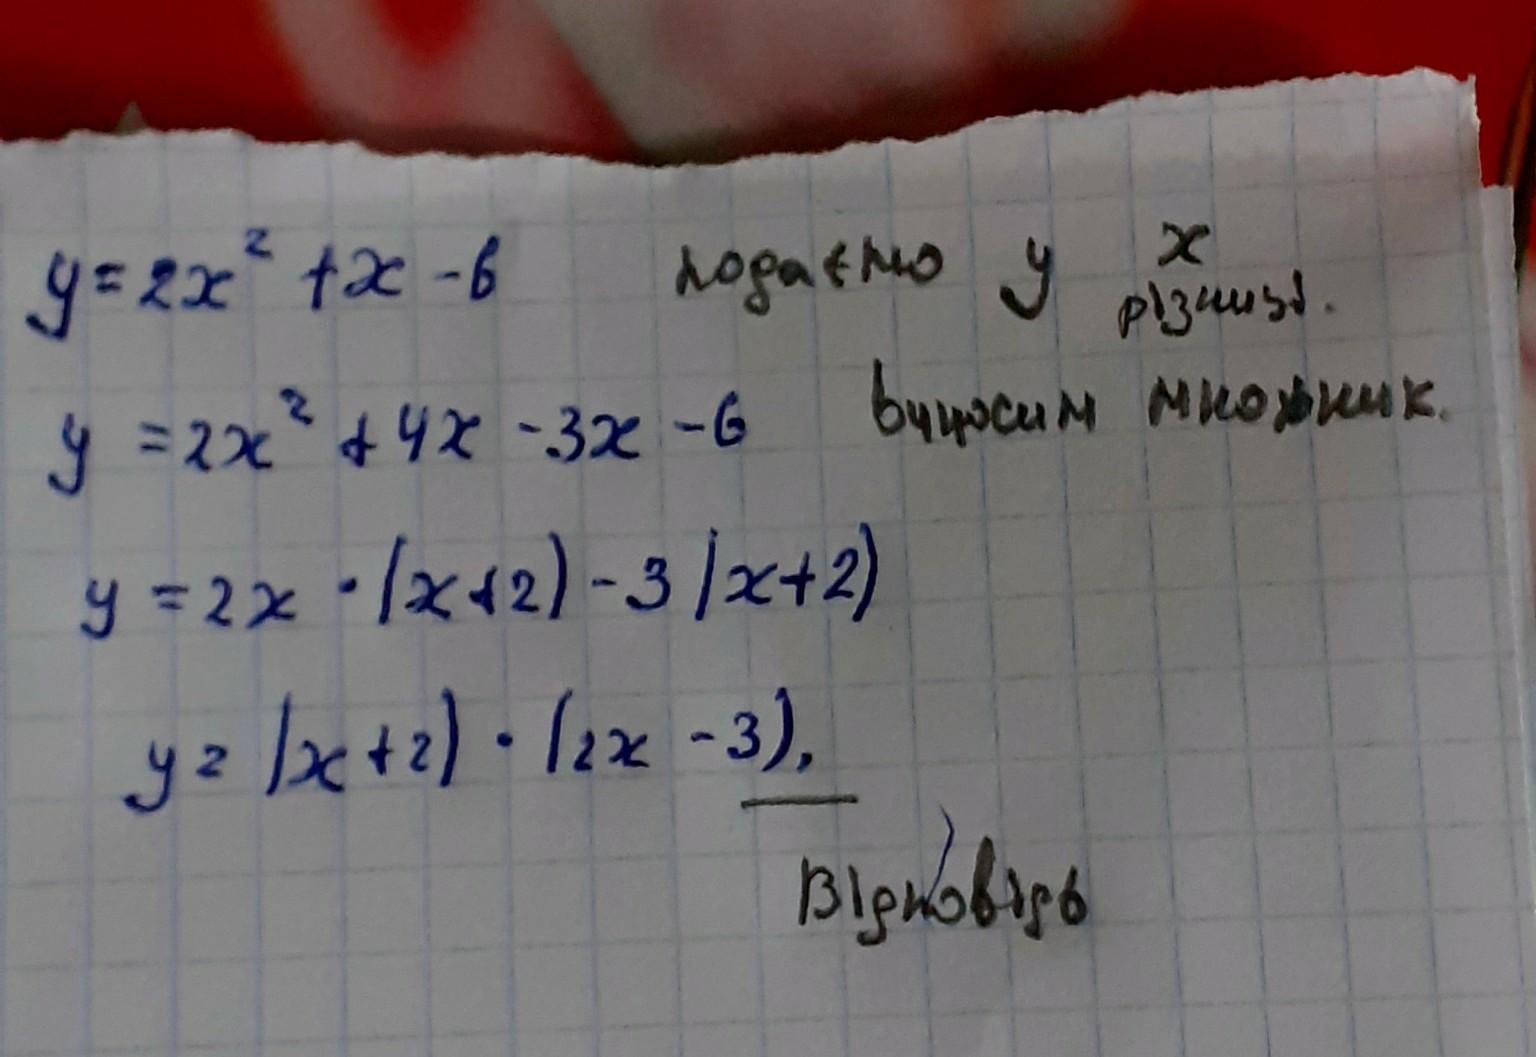 y = 2x² + x - 6 подаємо у х різниці.
y = 2x² + 4x - 3x - 6 виносим множник.
y = 2x · (x+2) - 3 (x+2)
y = (x+2) · (2x - 3).
Відповідь